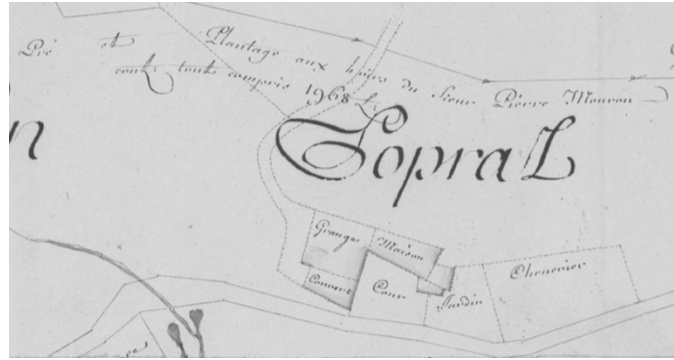 Pré et Plantage aux hoirs du Sieur Pierre Mouron
tout compris 1968
n
Sopral
Grange
Maison
Couvert
Cour
Jardin
Chenevier